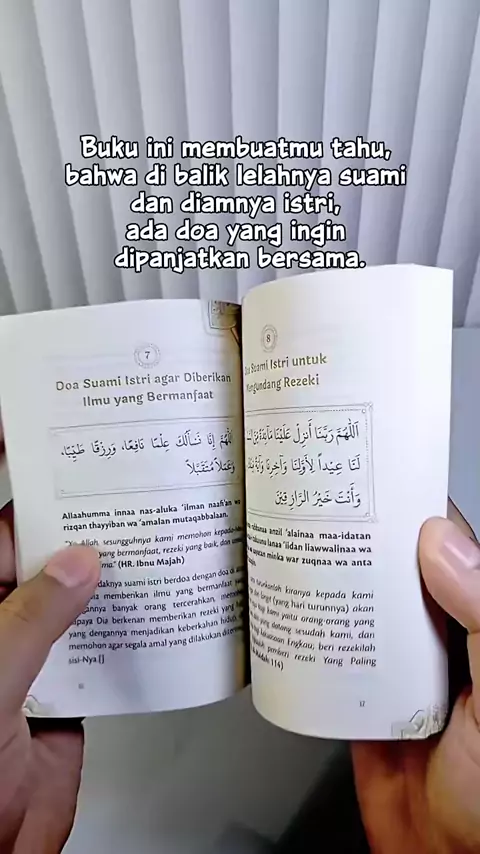 Buku ini membuatmu tahu,
bahwa di balik lelahnya suami
dan diamnya istri,
ada doa yang ingin
dipanjatkan bersama.
7
Doa Suami Istri agar Diberikan
Ilmu yang Bermanfaat
اَللّٰهُمَّ إِنَّا نَسْأَلُكَ عِلْمًا نَافِعًا، وَرِزْقًا طَيِّبًا،
وَعَمَلاً مُتَقَبَّلاً
Allaahumma innaa nas-aluka 'ilman naafi'an wa
rizqan thayyiban wa 'amalan mutaqabbalaan.
Allah, sesungguhnya kami memohon kepada
yang bermanfaat, rezeki yang baik, dan
(HR. Ibnu Majah)
suami istri berdoa dengan doa
memberikan ilmu yang bermanfaat
banyak orang tercerahkan,
Dia berkenan memberikan rezeki yang
yang dengannya menjadikan keberkahan hidup,
memohon agar segala amal yang dilakukan
sisi-Nya.[]
8
Suami Istri untuk
Mengundang Rezeki
اَللّٰهُمَّ رَبَّنَا أَنْزِلْ عَلَيْنَا مَائِدَةً مِنَ
لَنَا عِيْداً لِأَوَّلِنَا وَآخِرِنَا وَآيَةً
وَأَنْتَ خَيْرُ الرَّازِقِيْنَ
anzil 'alainaa maa-idatan
lanaa 'iidan liawwalinaa wa
minka war zuqnaa wa anta
turunkanlah kiranya kepada kami
dari langit (yang hari turunnya) akan
bagi kami yaitu orang-orang yang
yang datang sesudah kami, dan
kekuasaan Engkau, beri rezekilah
pemberi rezeki Yang Paling
114)
17